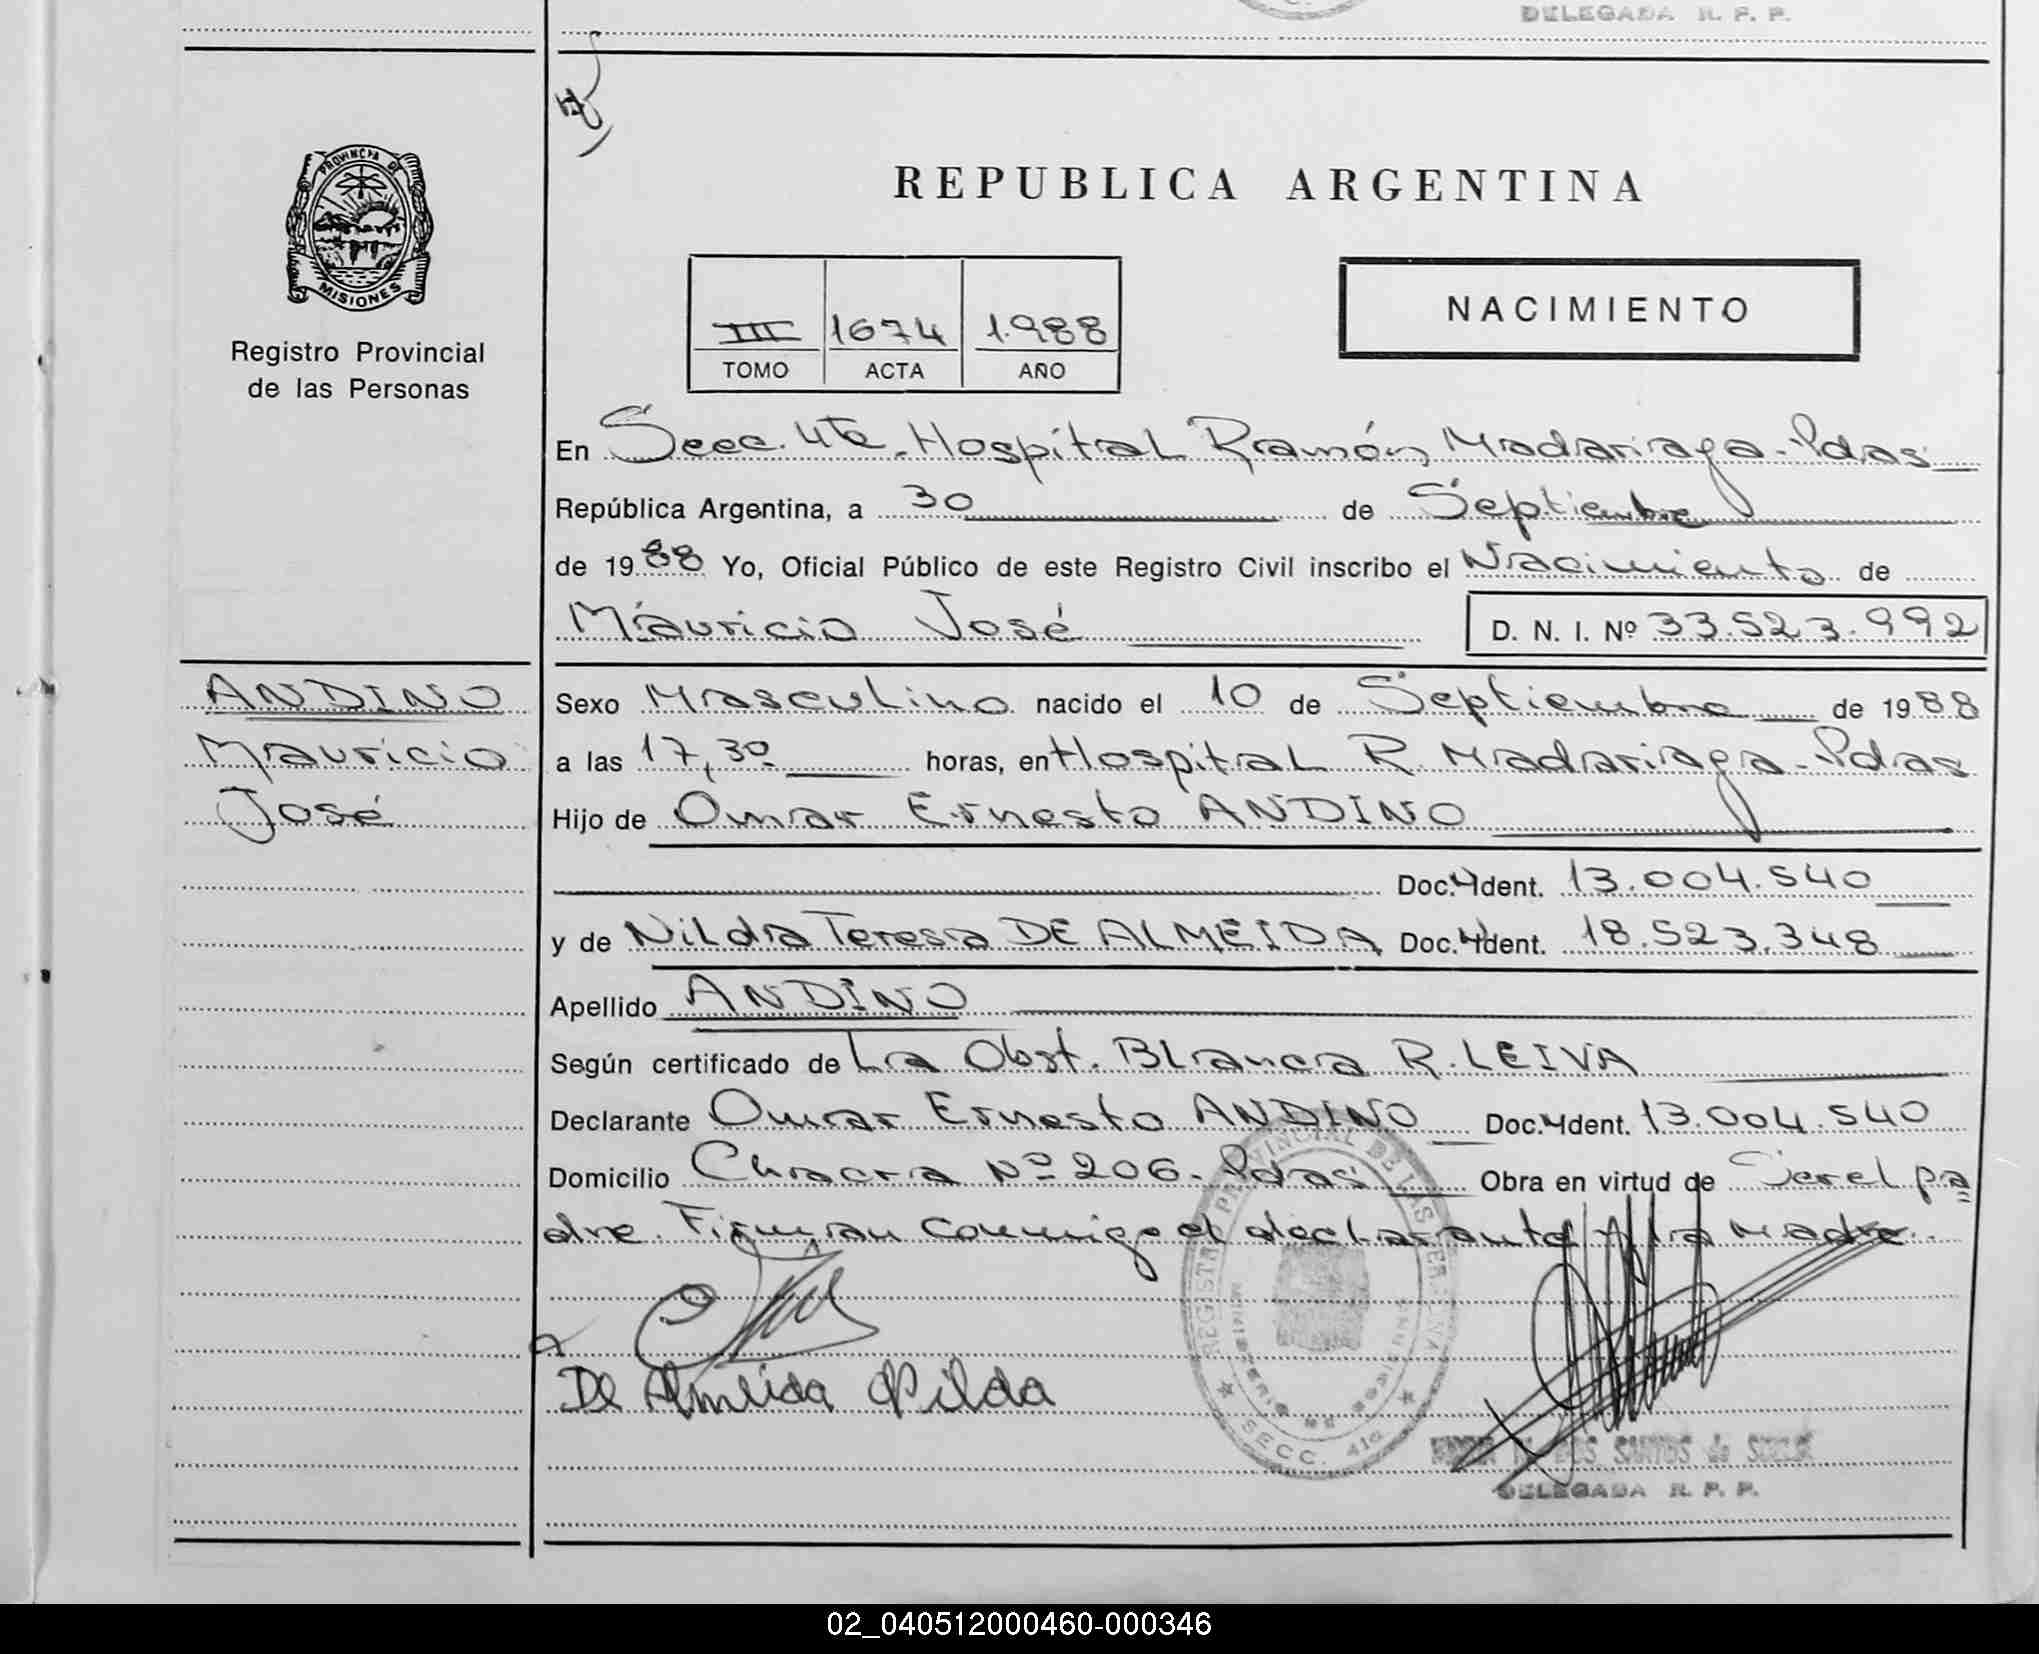 DELEGADA R. P. P.
PROVINCIA DE
MISIONES
Registro Provincial
de las Personas
REPUBLICA ARGENTINA
III 1674 1.988
TOMO ACTA AÑO
NACIMIENTO
En Secc. 4ta. Hospital Ramón Madariaga - Pdas
República Argentina, a 30 de Septiembre
de 1988 Yo, Oficial Público de este Registro Civil inscribo el Nacimiento de
Mauricio José D. N. I. Nº 33.523.992
ANDINO
Mauricio
José
Sexo Masculino nacido el 10 de Septiembre de 1988
a las 17,30 horas, en Hospital R. Madariaga - Pdas
Hijo de Omar Ernesto ANDINO
Doc. Ident. 13.004.540
y de Nilda Teresa DE ALMEIDA Doc. Ident. 18.523.348
Apellido ANDINO
Según certificado de La Obst. Blanca R. LEIVA
Declarante Omar Ernesto ANDINO Doc. Ident. 13.004.540
Domicilio Chacra Nº 206 - Pdas Obra en virtud de Ser el pa
dre. Firman conmigo el declarante y la Madre.
De Almeida Nilda
REGISTRO PROVINCIAL DE LAS PERSONAS
SECC. 4ta
DOS SANTOS de
DELEGADA R. P. P.
02_040512000460-000346